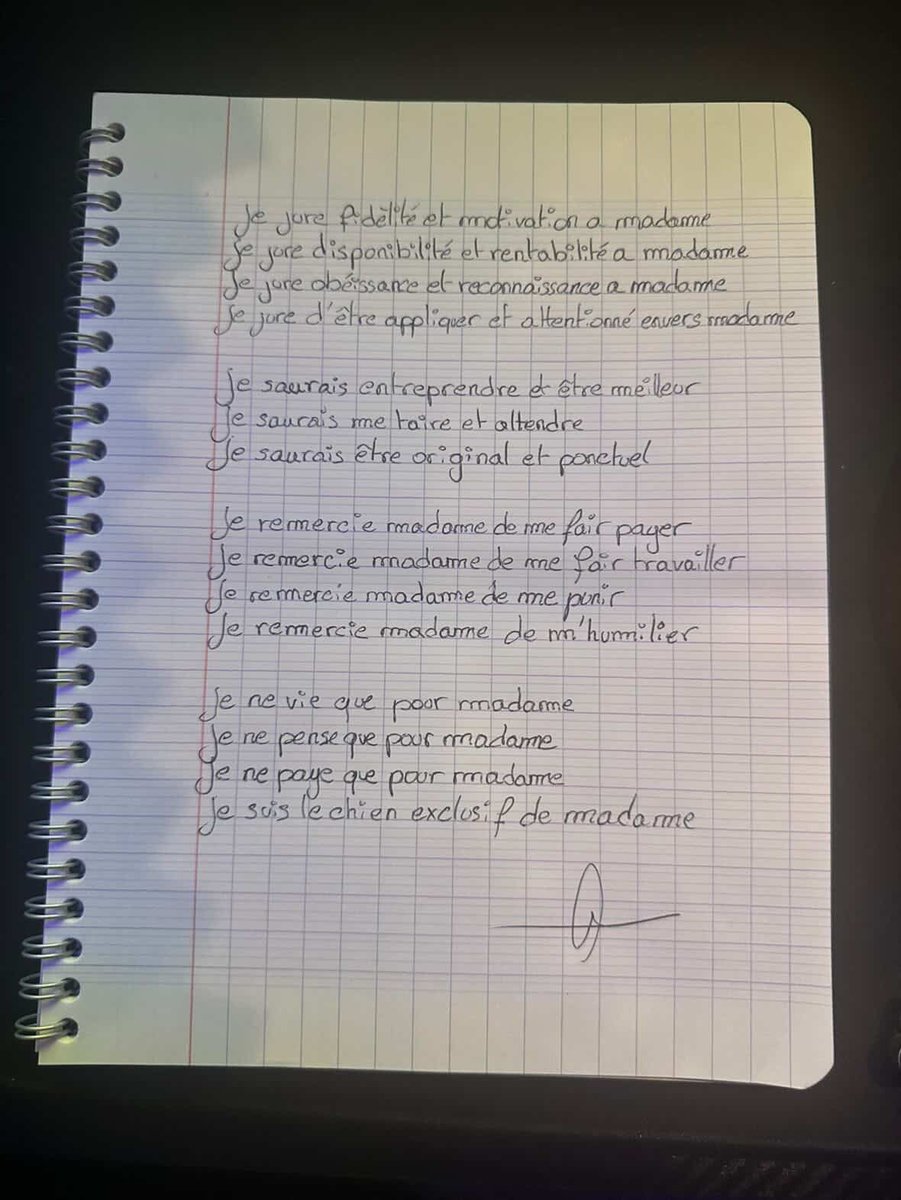 Je jure fidélité et motivation a madame
Je jure disponibilité et rentabilité a madame
Je jure obéissance et reconnaissance a madame
Je jure d'être appliquer et attentionné envers madame
Je saurais entreprendre et être meilleur
Je saurais me taire et attendre
Je saurais être original et ponctuel
Je remercie madame de me fair payer
Je remercie madame de me fair travailler
Je remercie madame de me punir
Je remercie madame de m'humilier
Je ne vie que pour madame
Je ne pense que pour madame
Je ne paye que pour madame
Je suis le chien exclusif de madame